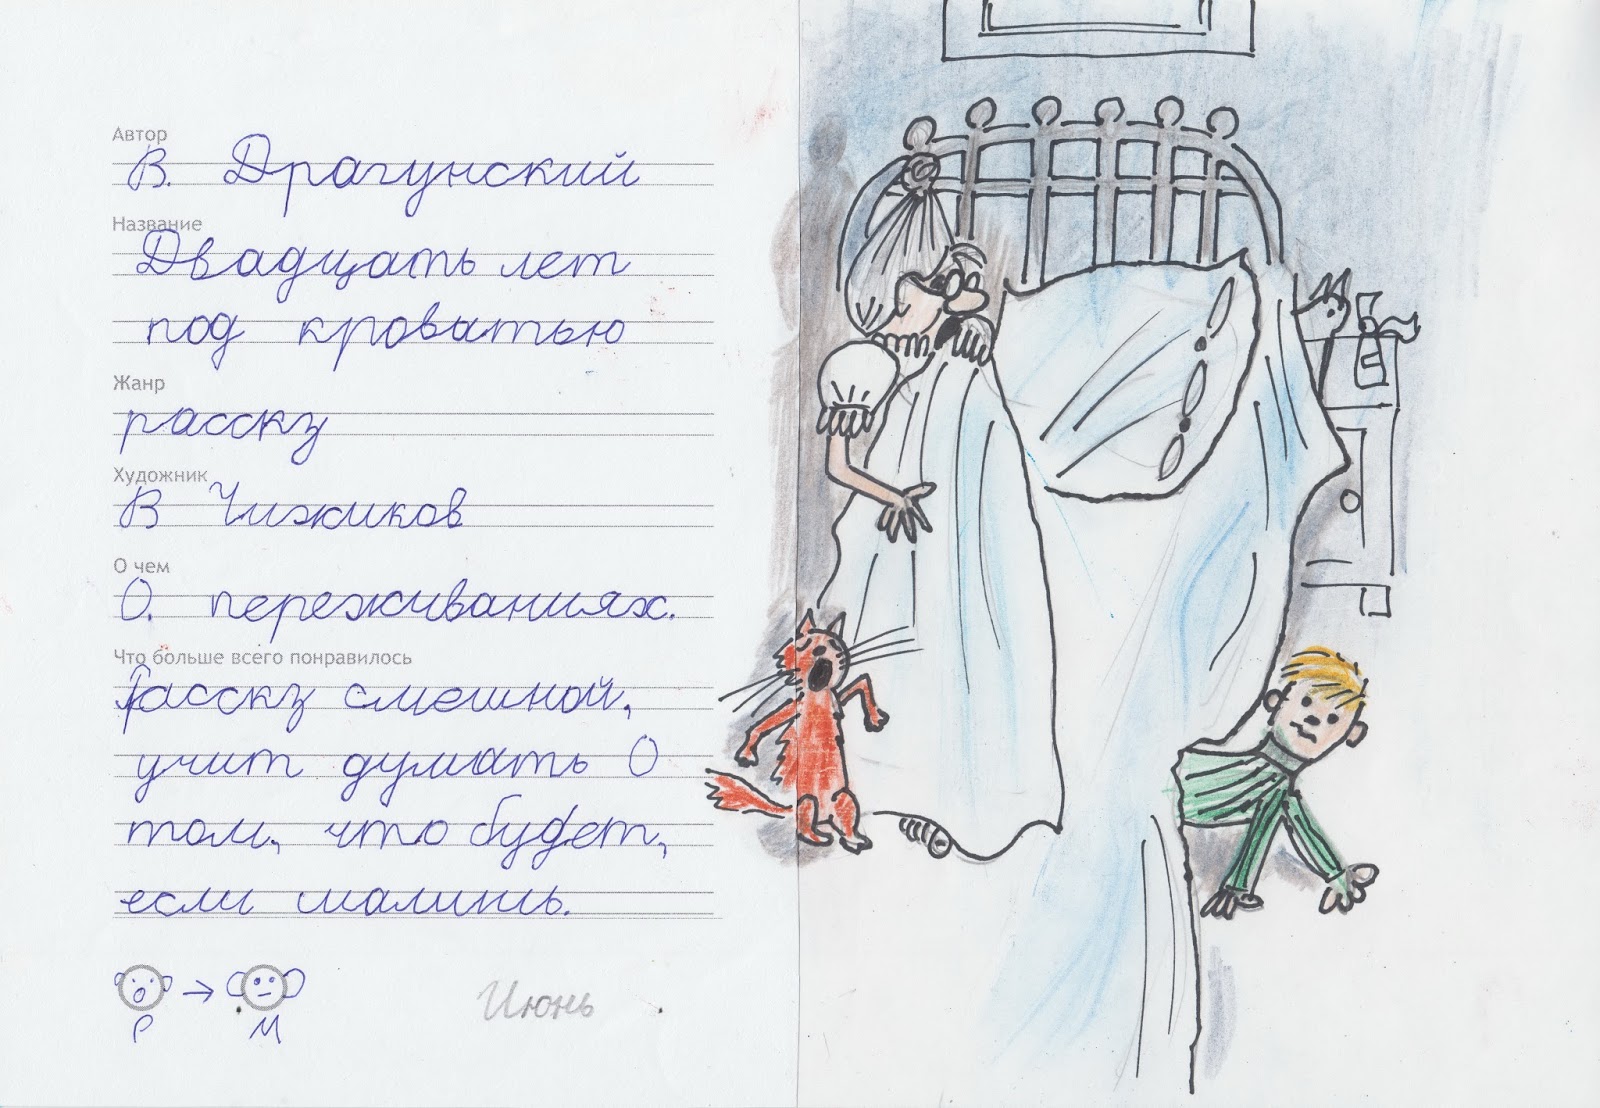 Автор
В. Драгунский
Название
Двадцать лет
под кроватью
Жанр
расскз
Художник
В Чижиков
О чем
О. переживаниях.
Что больше всего понравилось
Расскз смешной,
учит думать О
том, что будет,
если шалишь.
Р М
Июнь